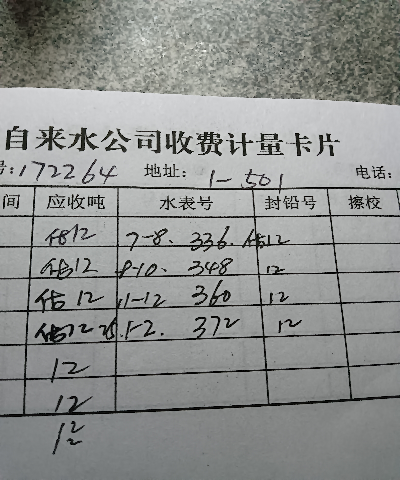 自来水公司收费计量卡片
号:172264 地址: 1-501 电话:
间 应收吨 水表号 封铅号 擦校
估12 7-8. 336. 估12
估12 8-10. 348 12
估12 11-12 360 12
估12 1-2. 372 12
12
12
12